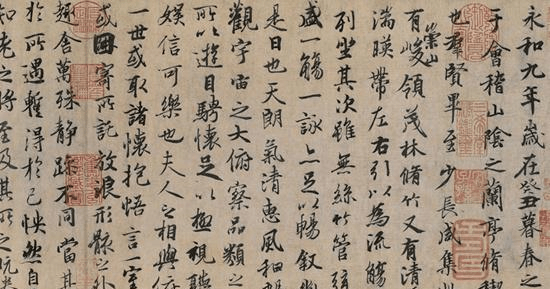 永和九年歲在癸丑暮春之
于會稽山陰之蘭亭脩禊
也羣賢畢至少長咸集
有崇山峻領茂林脩竹又有清
湍暎帶左右引以為流觴
列坐其次雖無絲竹管弦
盛一觴一詠亦足以暢敘
是日也天朗氣清惠風和暢
觀宇宙之大俯察品類之
所以遊目騁懷足以極視聽
娛信可樂也夫人之相與俯
一世或取諸懷抱悟言一室
或因寄所託放浪形骸之外
趣舍萬殊静躁不同當其
於所遇暫得於己怏然自
知老之將至及其所之既